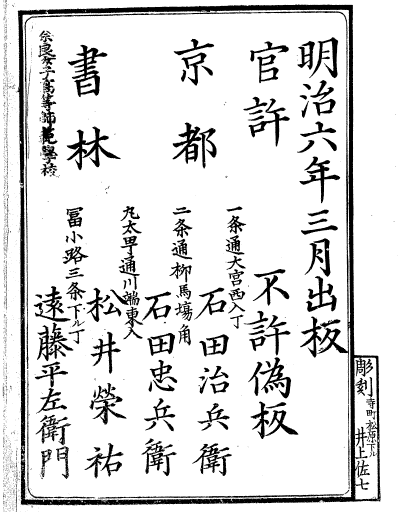 明治六年三月出板
官許
不許偽板
京都
書林
一条通大宮西入丁
石田治兵衛
二条通柳馬場角
石田忠兵衛
丸太甼通川端東入
松井榮祐
冨小路三条下ル丁
遠藤平左衛門
奈良女子高等師範學校
彫刻
寺町松原下ル
井上佐七